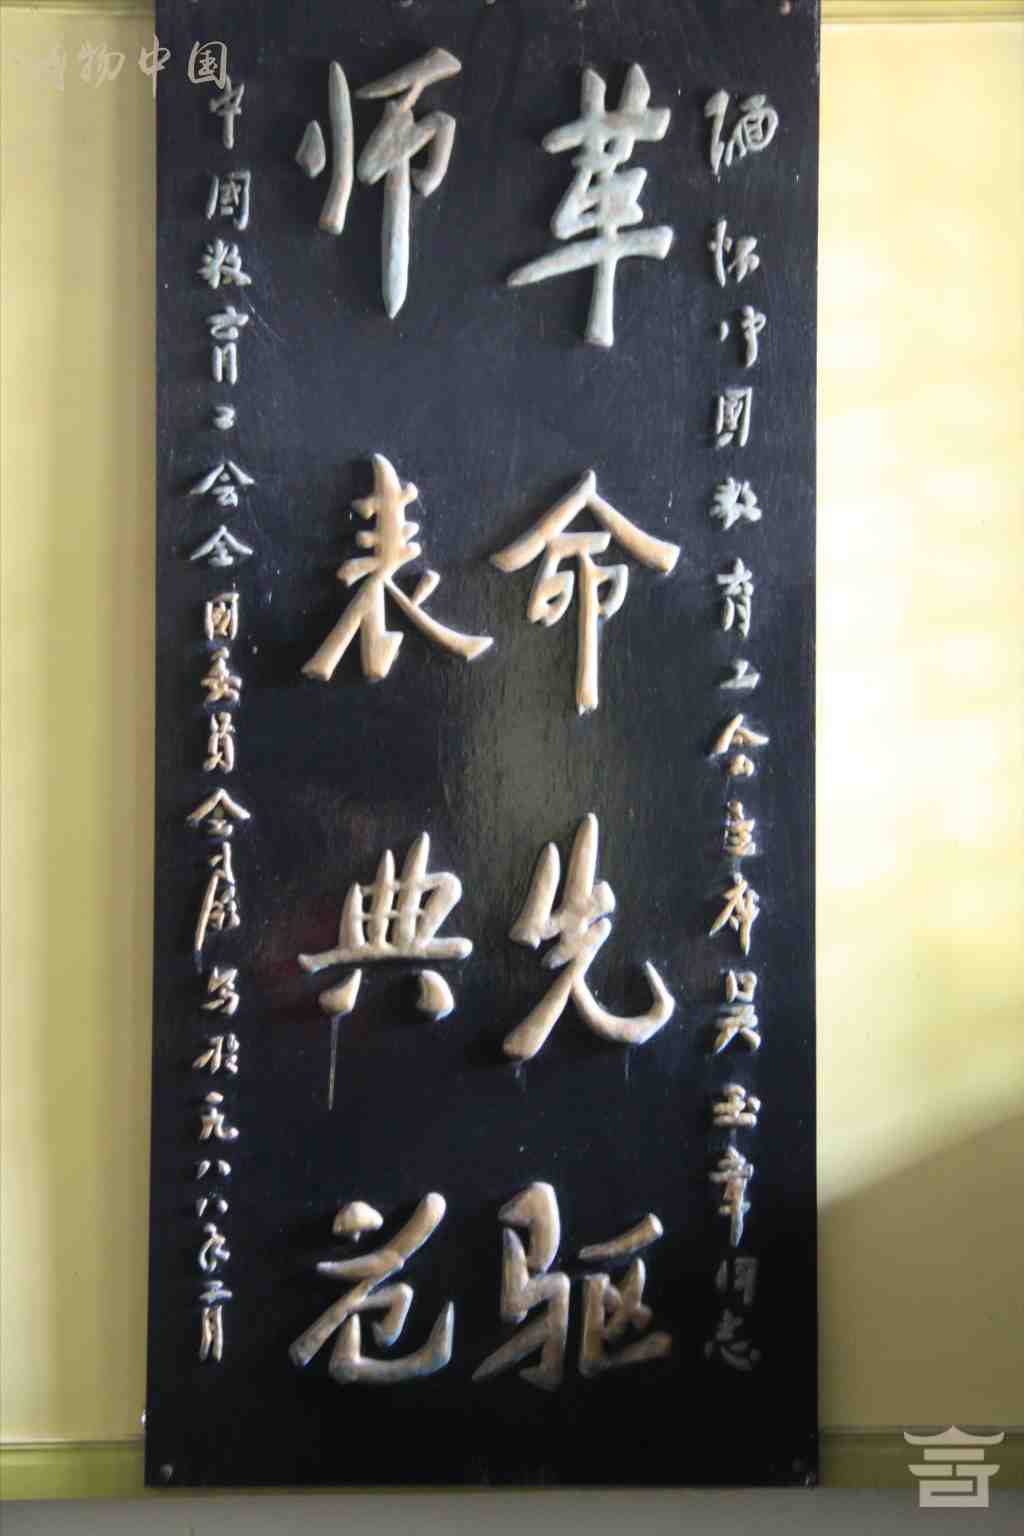 缅怀中国教育工会主席吴玉章同志
革命先驱
师表典范
中國教育工会全國委员会
写於一九八八年二月
博物中国